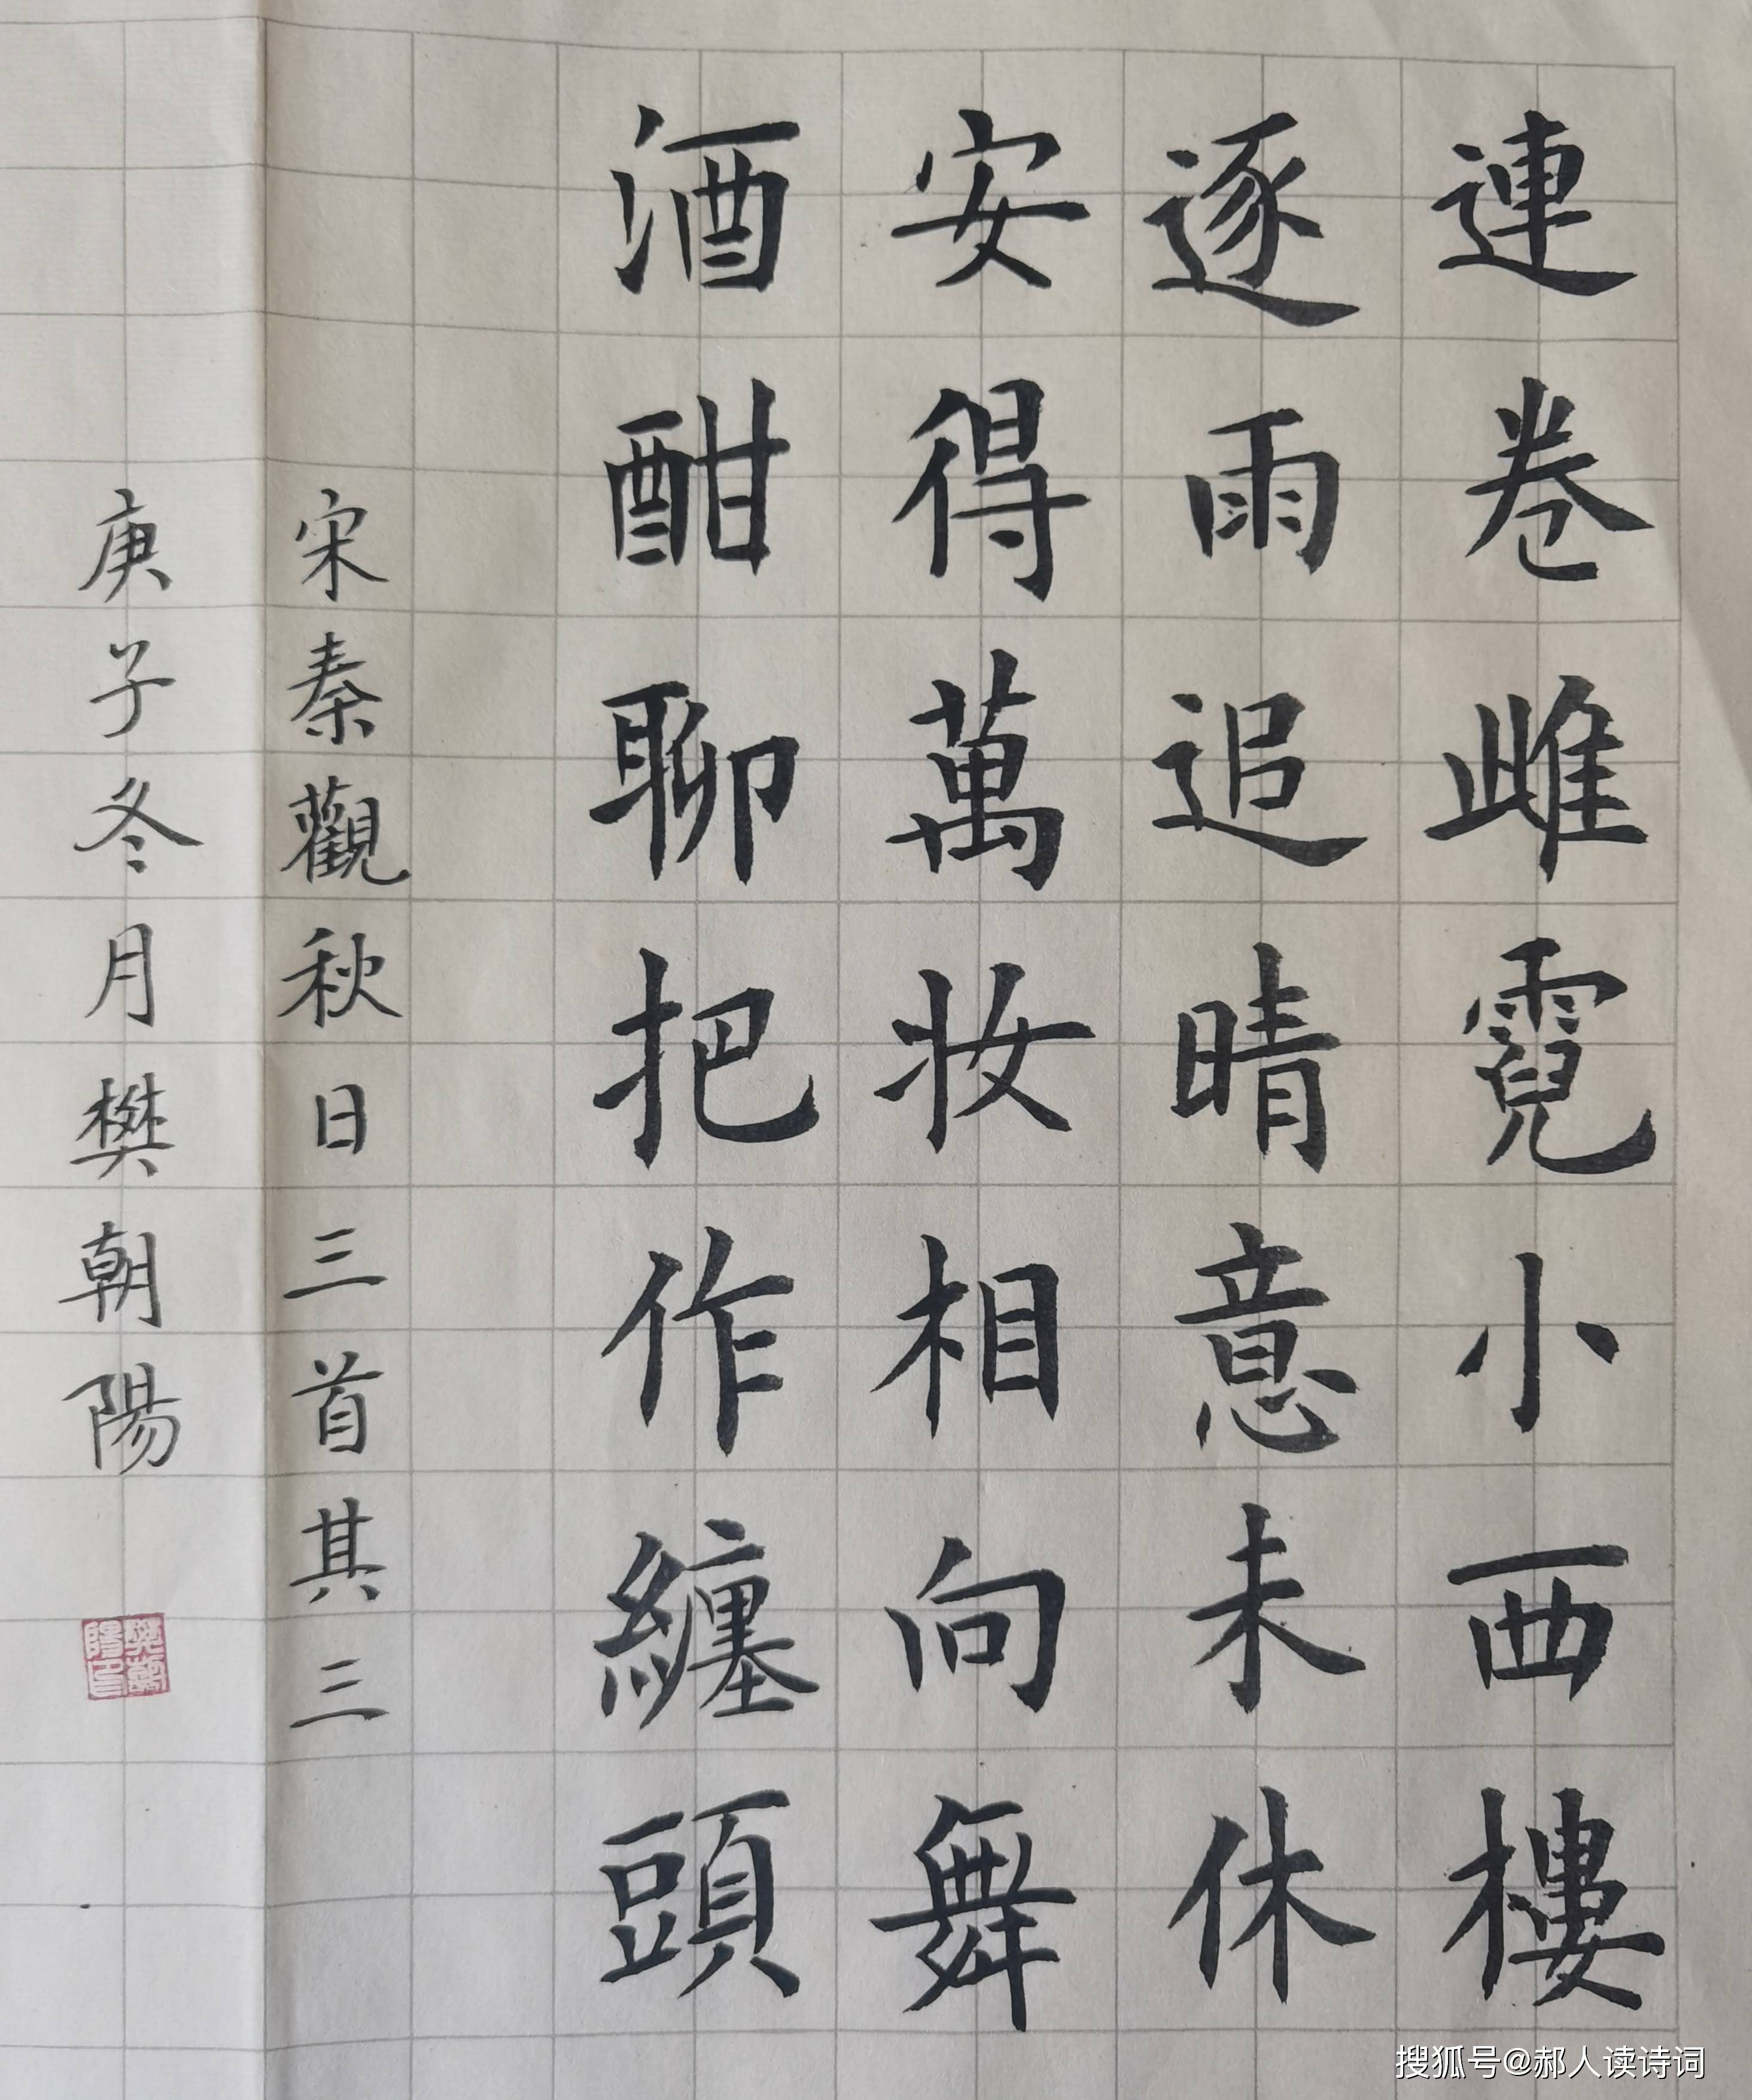 連卷雌霓小西樓
逐雨追晴意未休
安得萬妝相向舞
酒酣聊把作纏頭
宋秦觀秋日三首其三
庚子冬月樊朝陽
樊朝陽印
搜狐号@郝人读诗词